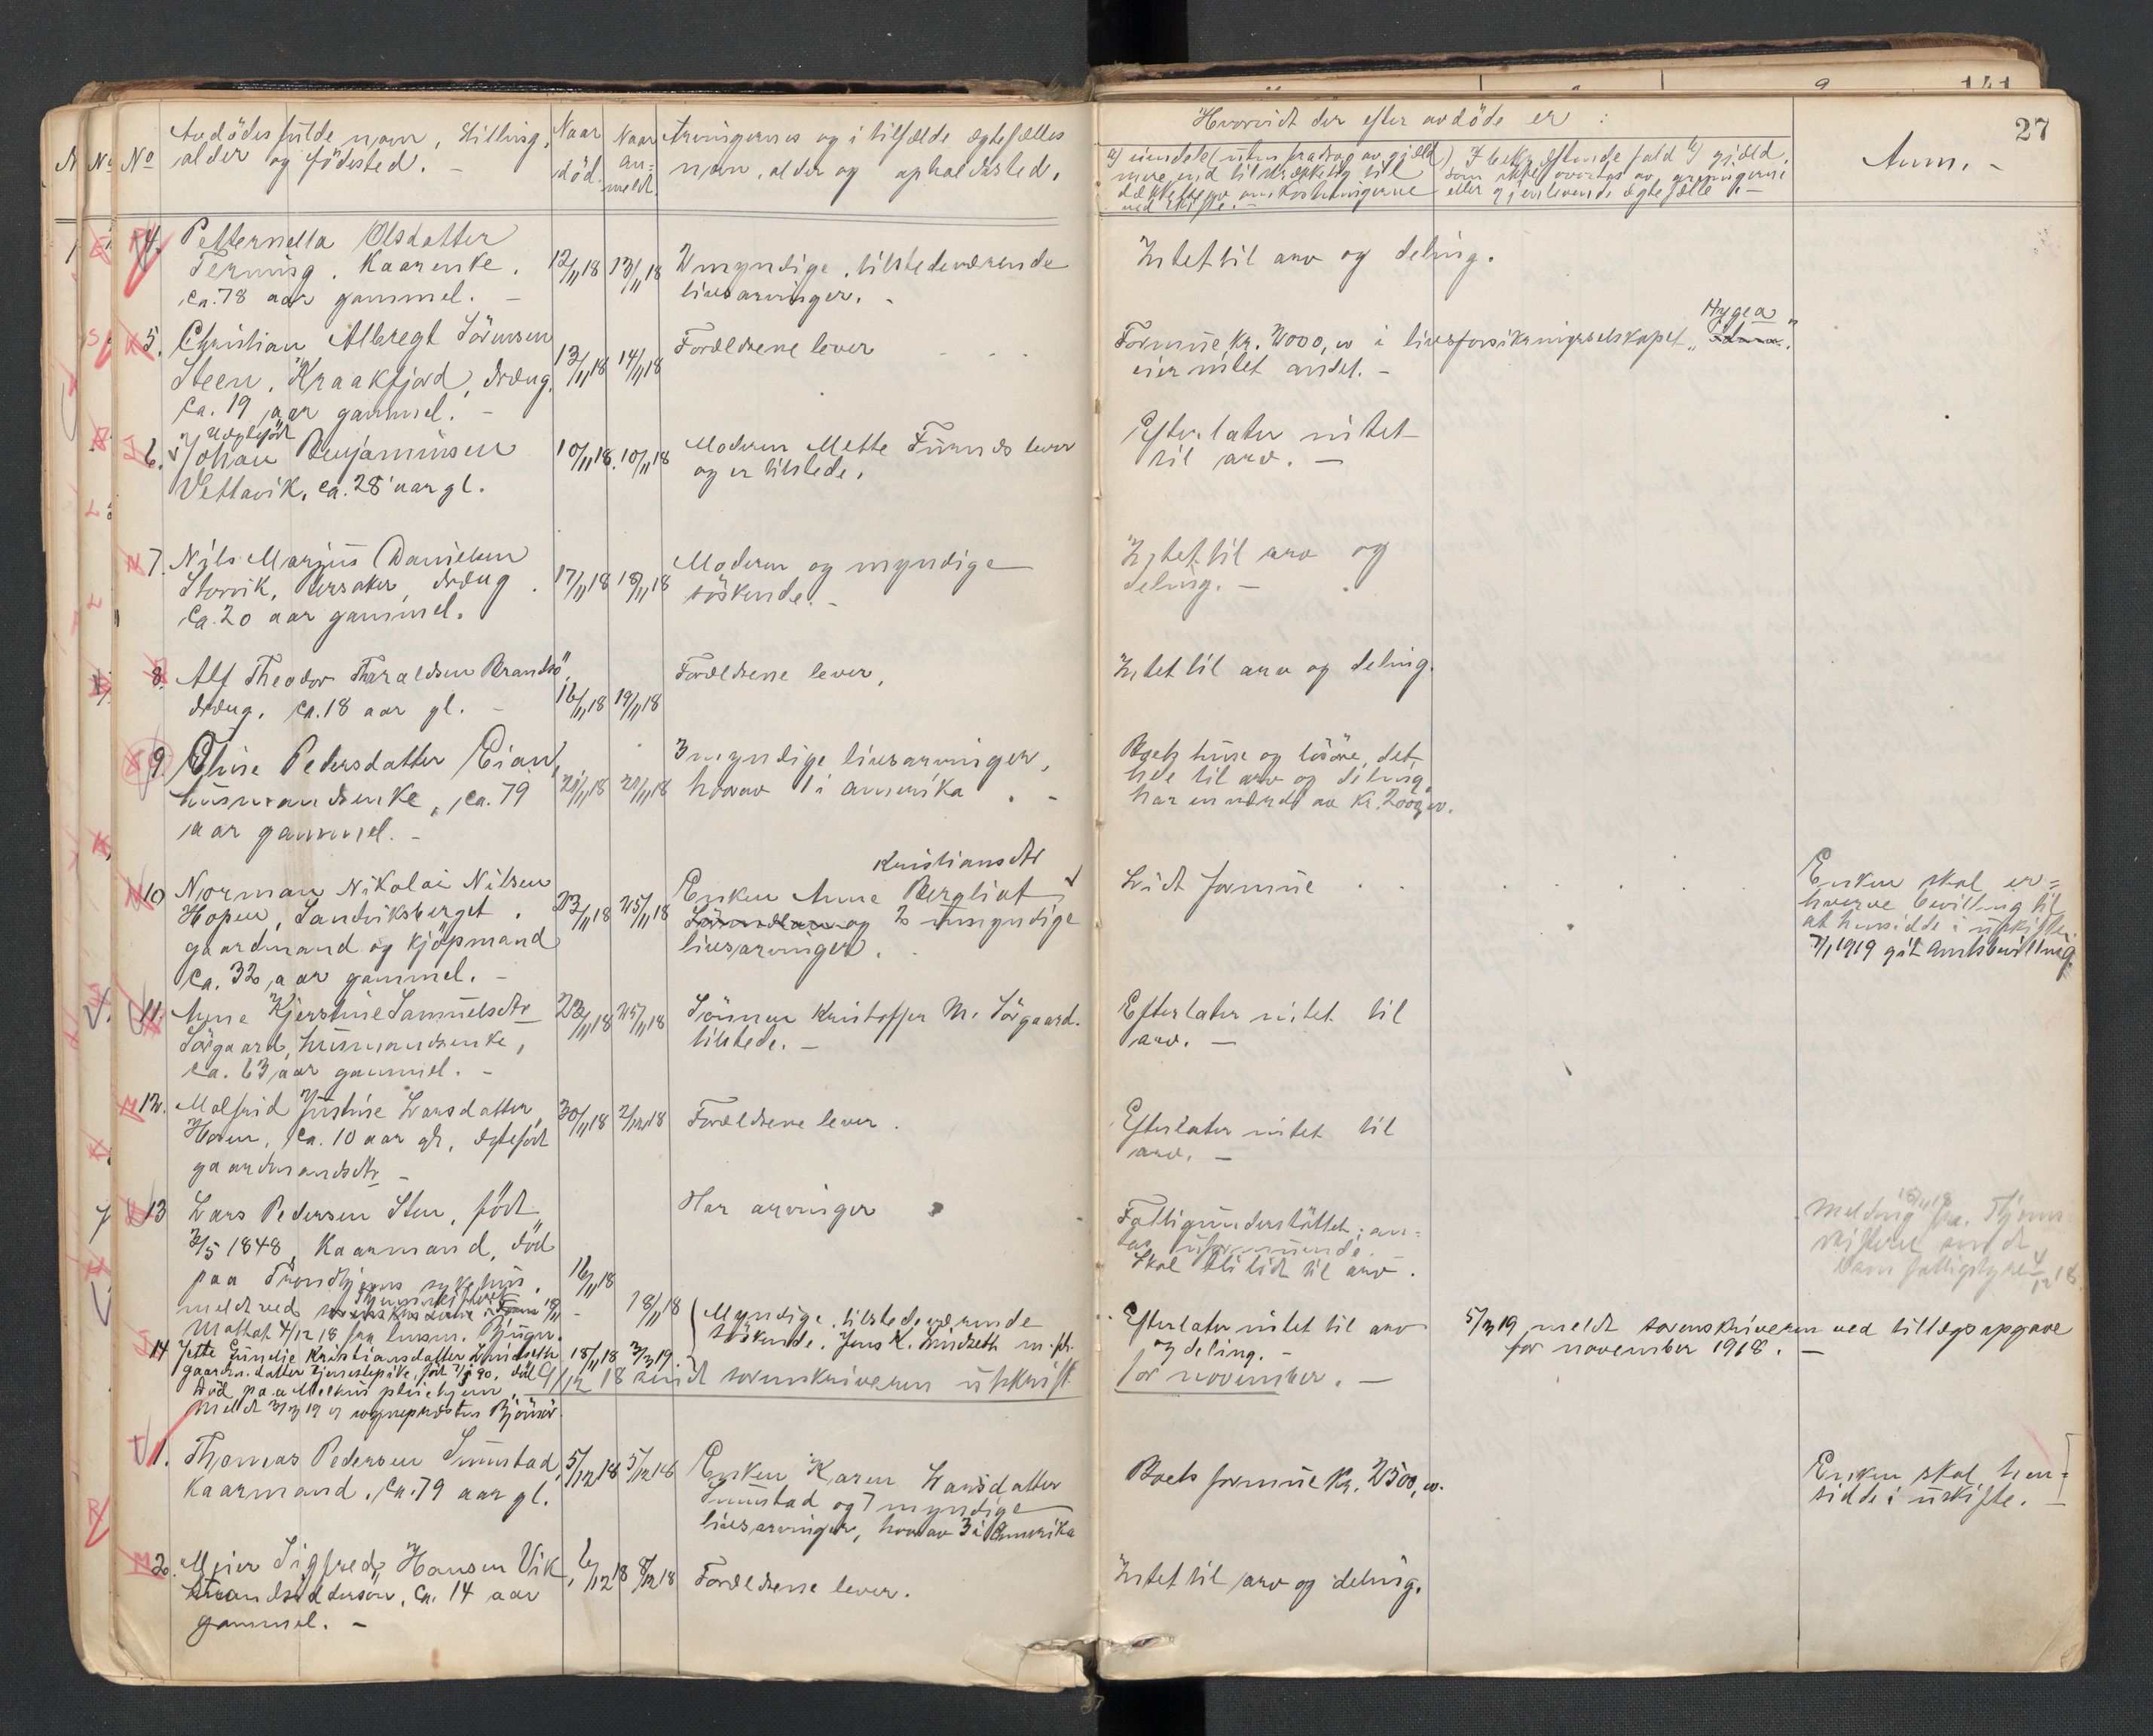 27
No
Avdödes fulde navn, stilling,
alder og födested. -
Naar
död.
Naar
an=
meldt.
Arvingernes og i tilfælde ægtefælles
navn, alder og opholdssted.
Hvorvidt der efter avdöde er :
a) midler (uten fradrag av gjæld)
mere end tilstrækkelig til
dækkelse av omkostningerne
ved skifte. -
b) gjæld,
som ikke overtas av arvingerne
eller gjenlevende ægtefælle. -
Anm. -
4. Petternella Olsdatter
Terning. Kaarenke.
ca. 78 aar gammel. -
12/11 18
13/11 18
2 myndige, tilstedeværende
livsarvinger. -
Intet til arv og deling.
5. Christian Albregt Sörensen
Steen, Kraakfjord, dreng,
ca. 19 aar gammel. -
13/11 18
14/11 18
Forældrene lever
Hygea
Formue kr. 2000,00 i livsforsikringsselskapet „Idun“.
eier intet andet. -
6. Johan Benjaminsen
Vettavik, ca. 28 aar gl.
10/11 18.
10/11 18
Moderen Mette lever
og er tilstede.
Efterlater intet
til arv. -
7. Nils Marius Danielsen
Storvik, dreng.
ca. 20 aar gammel.
17/11 18
18/11 18
Moderen og myndige
söskende. -
Intet til arv og
deling. -
8. Alf Theodor Haraldsen Brandsö,
dreng. ca. 18 aar gl. -
16/11 18
19/11 18
Forældrene lever.
Intet til arv og deling.
9. Eline Pedersdatter Eian,
husmandsenke, ca. 79
aar gammel. -
21/11 18
21/11 18
3 myndige livsarvinger,
hvorav 1 i Amerika. -
Boets huse og lösöre, det
hele til arv og deling,
har en værdi av kr. 200,00.
10 Norman Nikolai Nilsen
Hopen, Sandviksberget.
gaardmand og kjöpmand
ca. 32 aar gammel. -
23/11 18
25/11 18
Kristiansdtr
Enken Anne Bergliot
og 2 umyndige
livsarvinger.
Lidt formue
Enken skal er=
hverve bevilling til
at hensidde i uskifte.
7/1 1919 git Amtsbevilling.
11. Anne Kjerstine Samuelsdtr
Sörgaard, husmandsenke,
ca. 63 aar gammel. -
23/11 18
25/11 18
Sönnen Kristoffer M. Sörgaard.
tilstede. -
Efterlater intet til
arv. -
12. Malfrid Justine Larsdatter
ca. 10 aar gl., ægtefödt
gaardmandsdtr -
30/11 18
2/12 18
Forældrene lever.
Efterlater intet til
arv. -
13 Lars Pedersen Sten, födt
3/5 1848, Kaarmand, död
paa Trondhjems sykehus.
meldt ved
Mottat 4/12 18 fra lensm. Bjugn.
16/11 18
18/11 18
Har arvinger
Fattigunderstöttet; an=
tas uformuende. -
Skal bli lidt til arv.
Melding fra
14 Jette Gunelie Kristiansdatter Lindseth
gaardm. datter tjenestepike, födt 90,
död paa Melhus pleiehjem, -
meldt 3/3 19 av sognepresten Bjönör.
15/11 18
3/3 19.
Myndige, tilstedeværende
söskende. Jens K. Lindseth m. fl.
Efterlater intet til arv
og deling. -
5/3 19 meldt sorenskriveren ved tillægsopgave
for november 1918. -
9/12 18 sendt sorenskriveren utskrift
for november. -
1. Thomas Pedersen Sumstad,
Kaarmand. ca. 79 aar gl.
5/12 18
5/12 18
Enken Karen Larsdatter
Sumstad og 7 myndige
livsarvinger, hvorav 3 i Amerika
Boets formue kr. 2500,00.
Enken skal hen=
sidde i uskifte. -
2. Meier Sigfred Hansen Vik,
ca. 14 aar
gammel. -
6/12 18
8/12 18
Forældrene lever.
Intet til arv og deling.